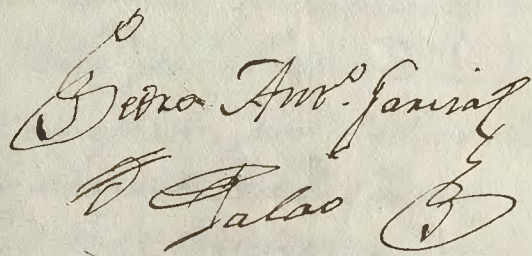 Pedro Antº. Garcia
D Galao